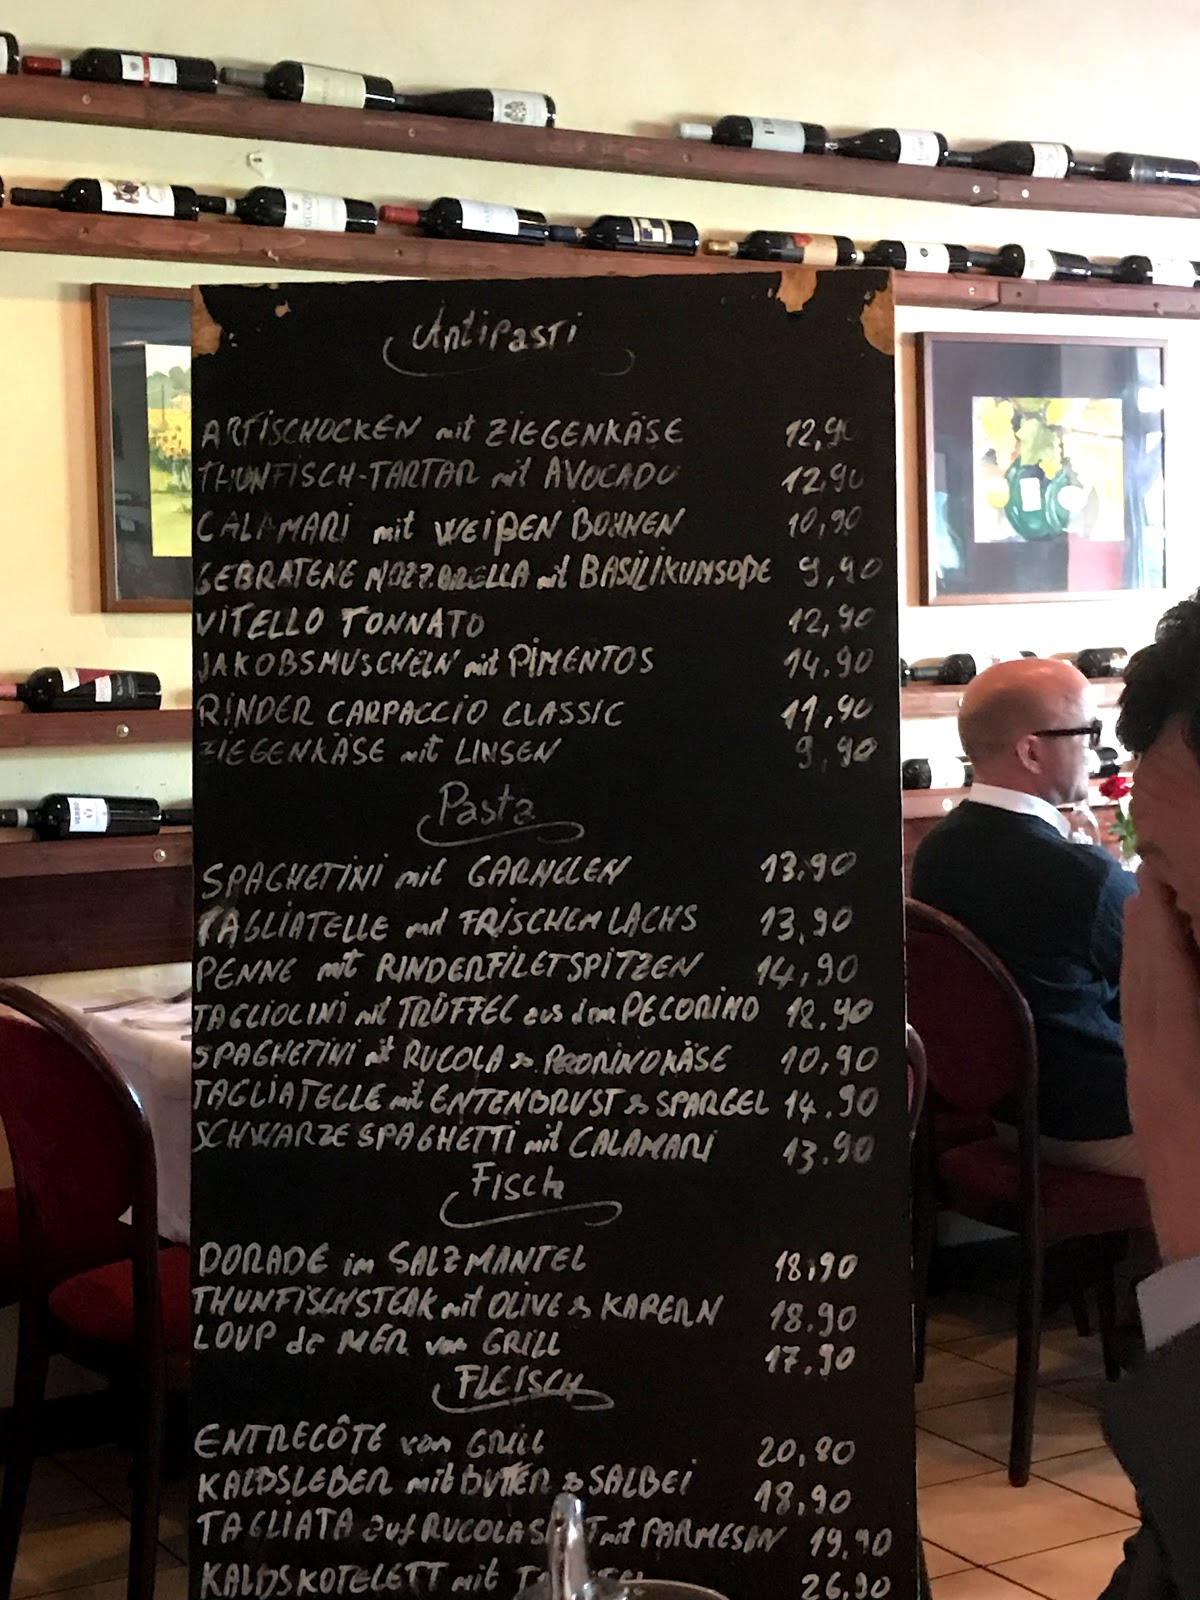 Antipasti
ARTISCHOCKEN mit ZIEGENKÄSE 12,90
THUNFISCH-TARTAR mit AVOCADO 12,90
CALAMARI mit WEIßEN BOHNEN 10,90
GEBRATENE MOZZARELLA mit BASILIKUMSOßE 9,90
VITELLO TONNATO 12,90
JAKOBSMUSCHELN mit PIMENTOS 14,90
RINDER CARPACCIO CLASSIC 11,90
ZIEGENKÄSE mit LINSEN 9,90
Pasta
SPAGHETINI mit GARNELEN 13.90
TAGLIATELLE mit FRISCHEM LACHS 13,90
PENNE mit RINDERFILETSPITZEN 14,90
TAGLIOLINI mit TRÜFFEL aus dem PECORINO 18.90
SPAGHETINI mit RUCOLA & PECORINOKÄSE 10,90
TAGLIATELLE mit ENTENBRUST & SPARGEL 14.90
SCHWARZE SPAGHETTI mit CALAMARI 13.90
Fisch
DORADE im SALZMANTEL 18,90
THUNFISCHSTEAK mit OLIVE & KAPERN 18.90
LOUP de MER vom GRILL 17.90
FLEISCH
ENTRECÔTE vom GRILL 20,80
KALBSLEBER mit BUTTER & SALBEI 18,90
TAGLIATA auf RUCOLA mit PARMESAN 19,90
KALBSKOTELETT mit 26,90